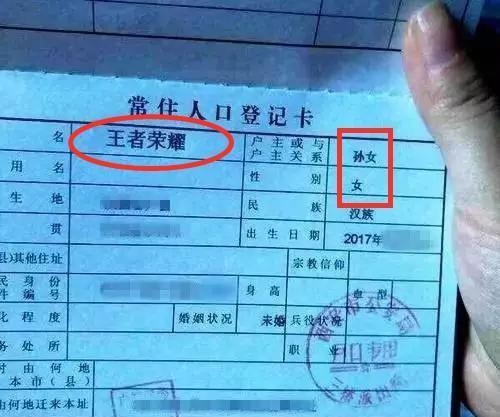 常住人口登记卡
名 王者荣耀 户主或与户主关系 孙女
用名 性别 女
生地 民族 汉族
贯 出生日期 2017年
县)其他住址 宗教信仰
民身份件编号 身高 血型
化程度 婚姻状况 未婚 兵役状况
务处所 职业
时由何地本市(县)
由何地迁来本址